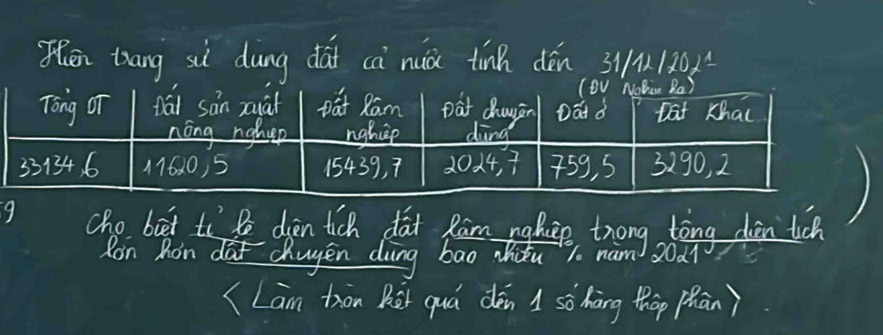 Hiện trạng sử dụng đất cả nước tính đến 31/12/2021
(ĐV Nghìn ha)
Tổng DT Đất sản xuất nông nghiệp Đất lâm nghiệp Đất chuyên dùng Đất ở Đất khác
33134,6 11620,5 15439,7 2024,7 759,5 3290,2
Cho biết tỉ lệ diện tích đất lâm nghiệp trong tổng diện tích
lớn hơn đất chuyên dùng bao nhiêu % năm 2021
<Làm tròn kết quả đến 1 số hàng thập phân>